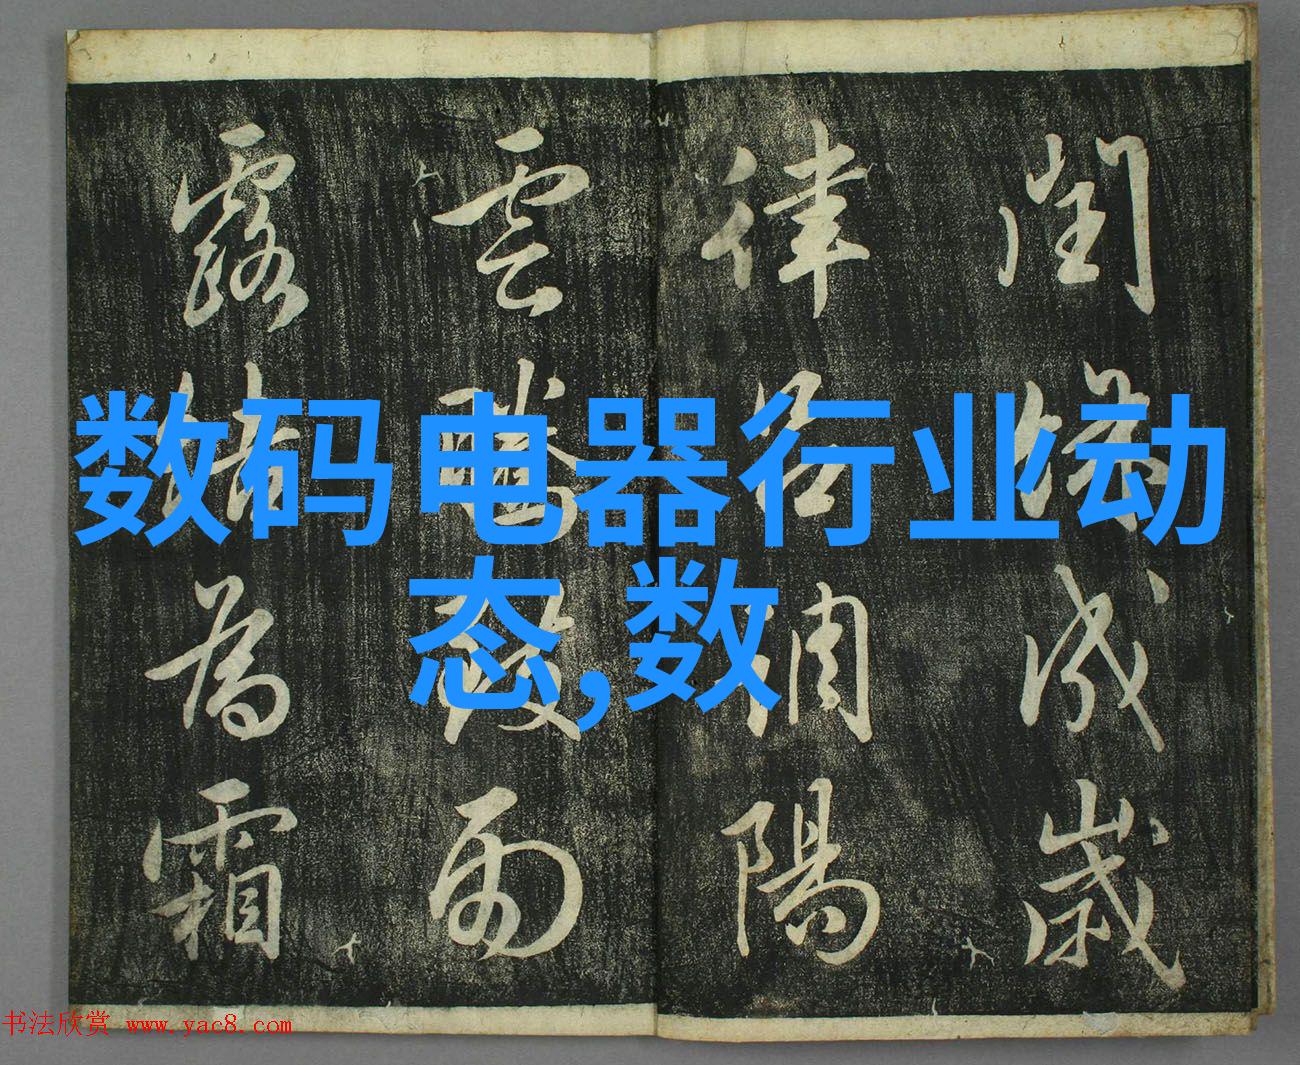 数码电器行业动态,数
閏餘成歲
律呂調陽
雲騰致雨
露結為霜
书法欣赏 www.yac8.com